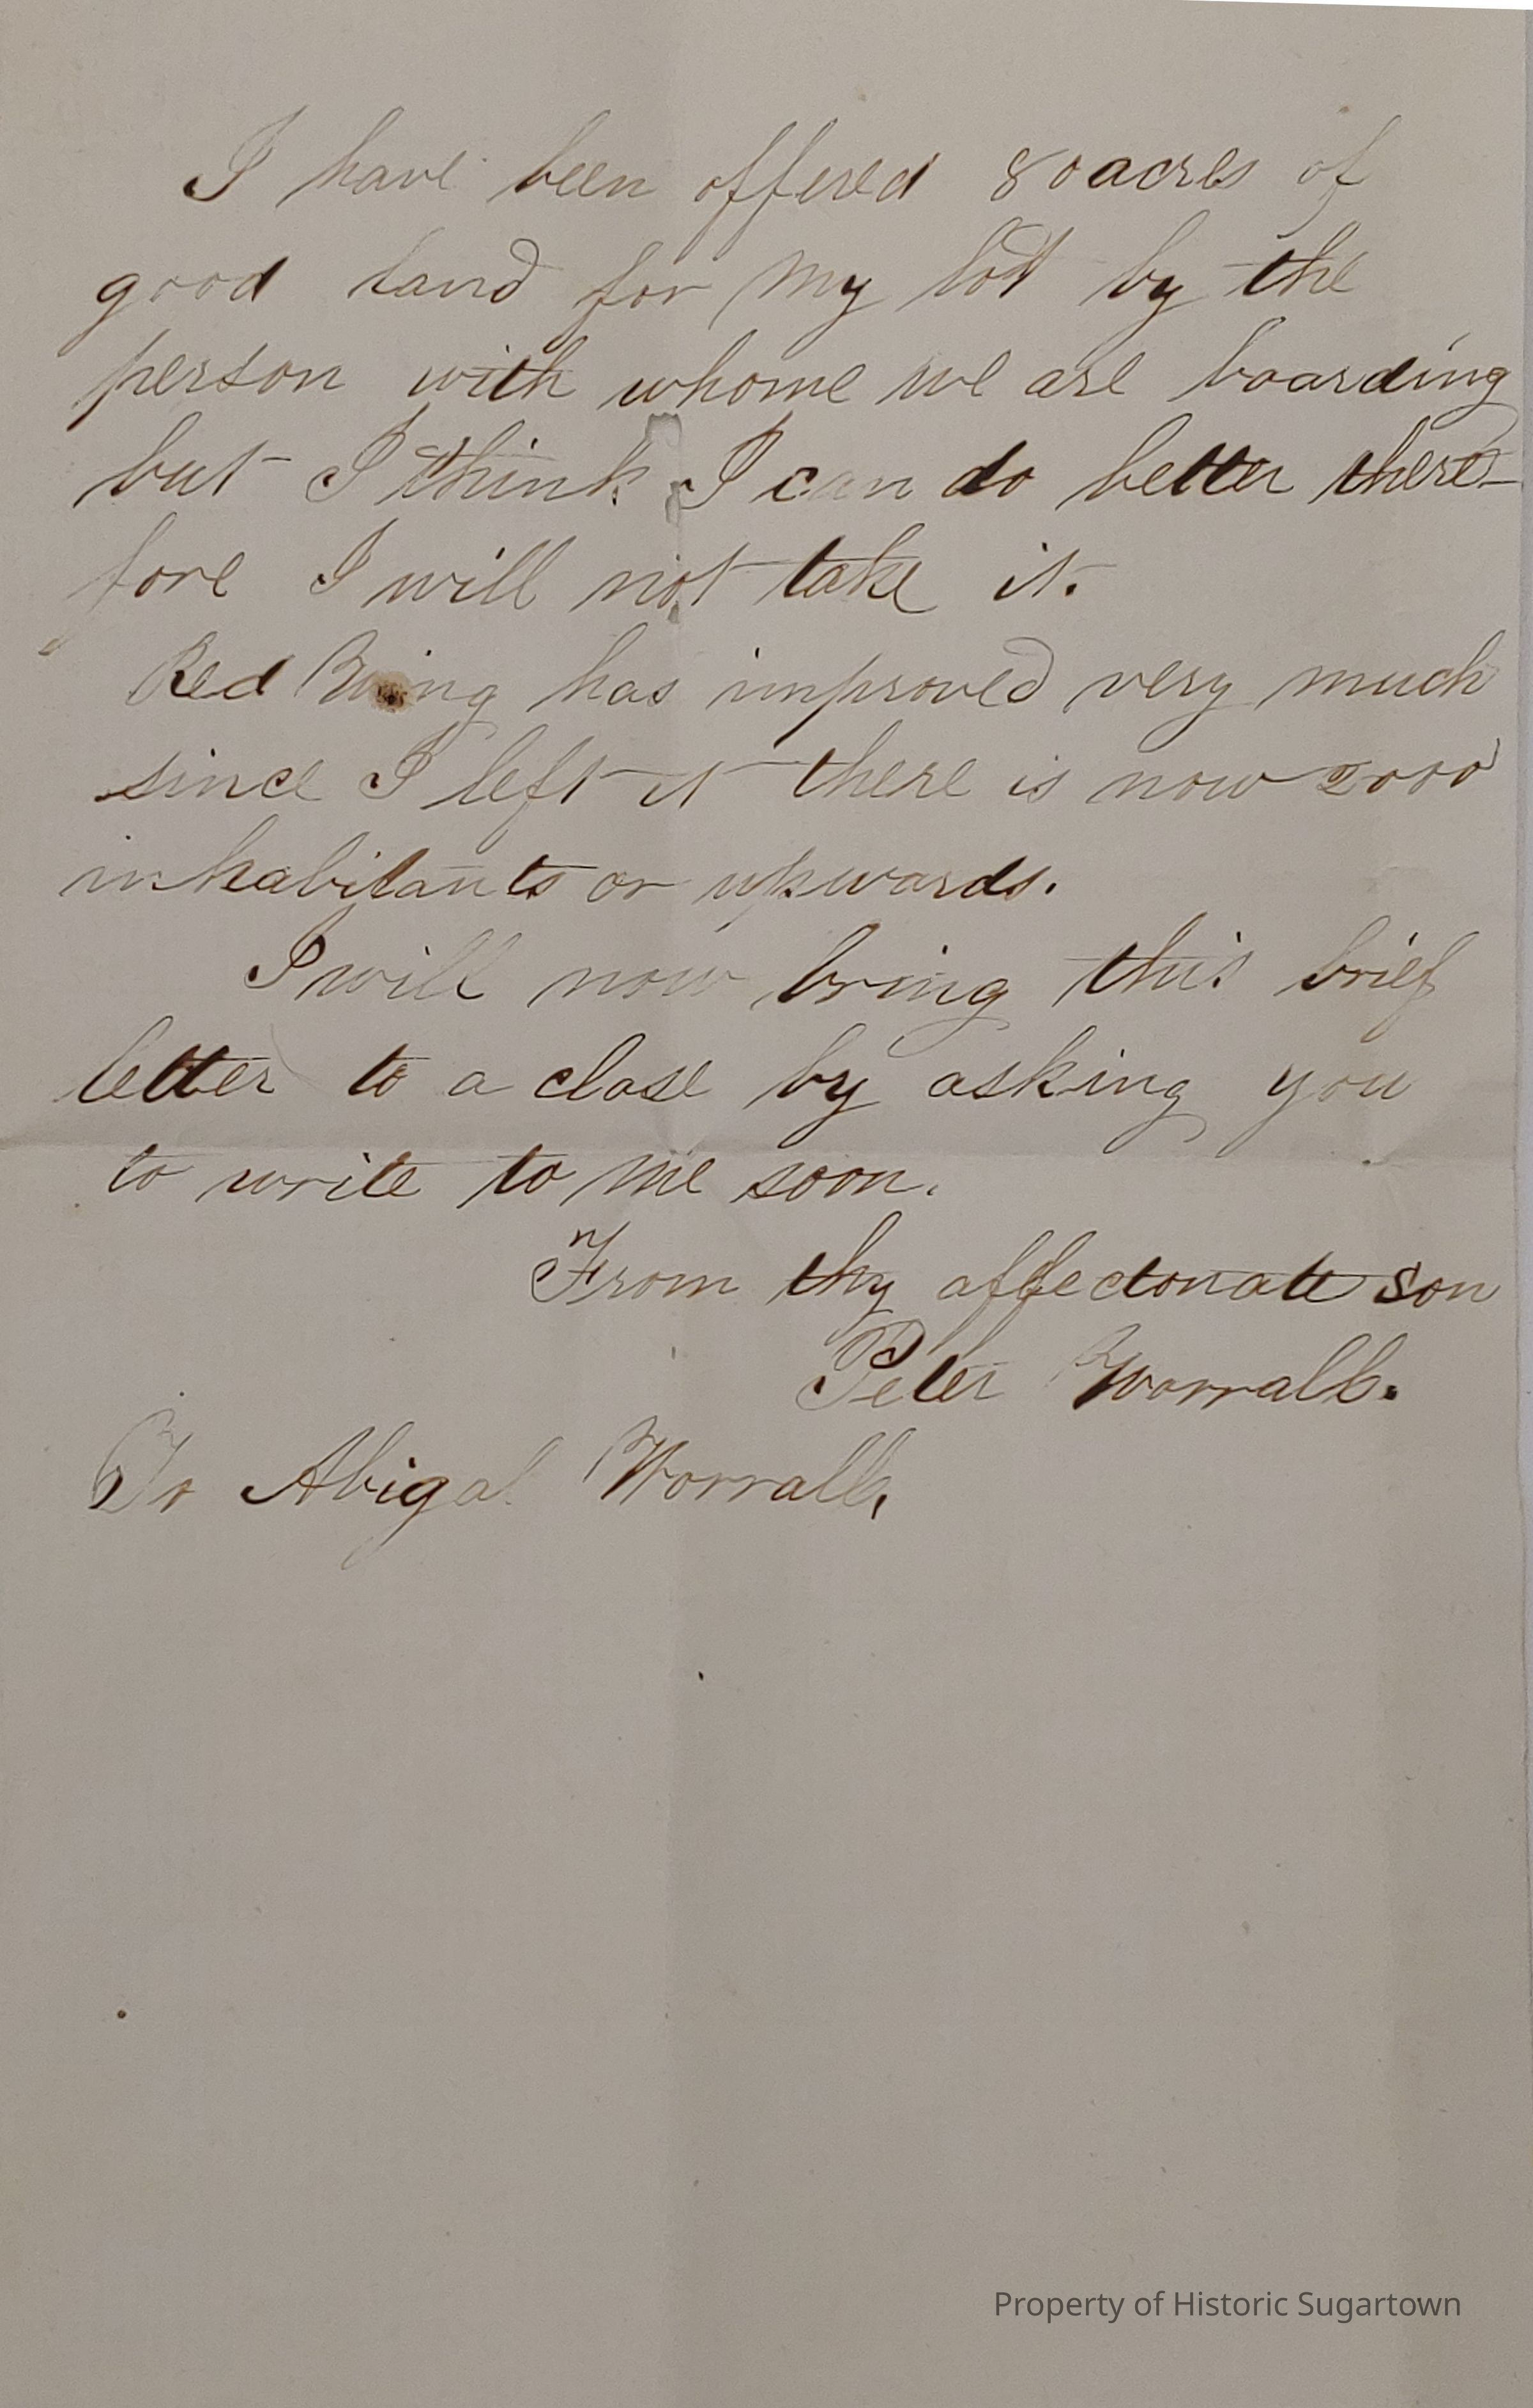 I have been offered 80 acres of
good land for my lot by the
person with whome we are boarding
but I think I can do better there-
fore I will not take it.
Red Wing has improved very much
since I left it there is now 2000
inhabitants or upwards.
I will now bring this brief
letter to a close by asking you
to write to me soon.
From thy affectonate son
Peter Worrall.
To Abigal Worrall,
Property of Historic Sugartown